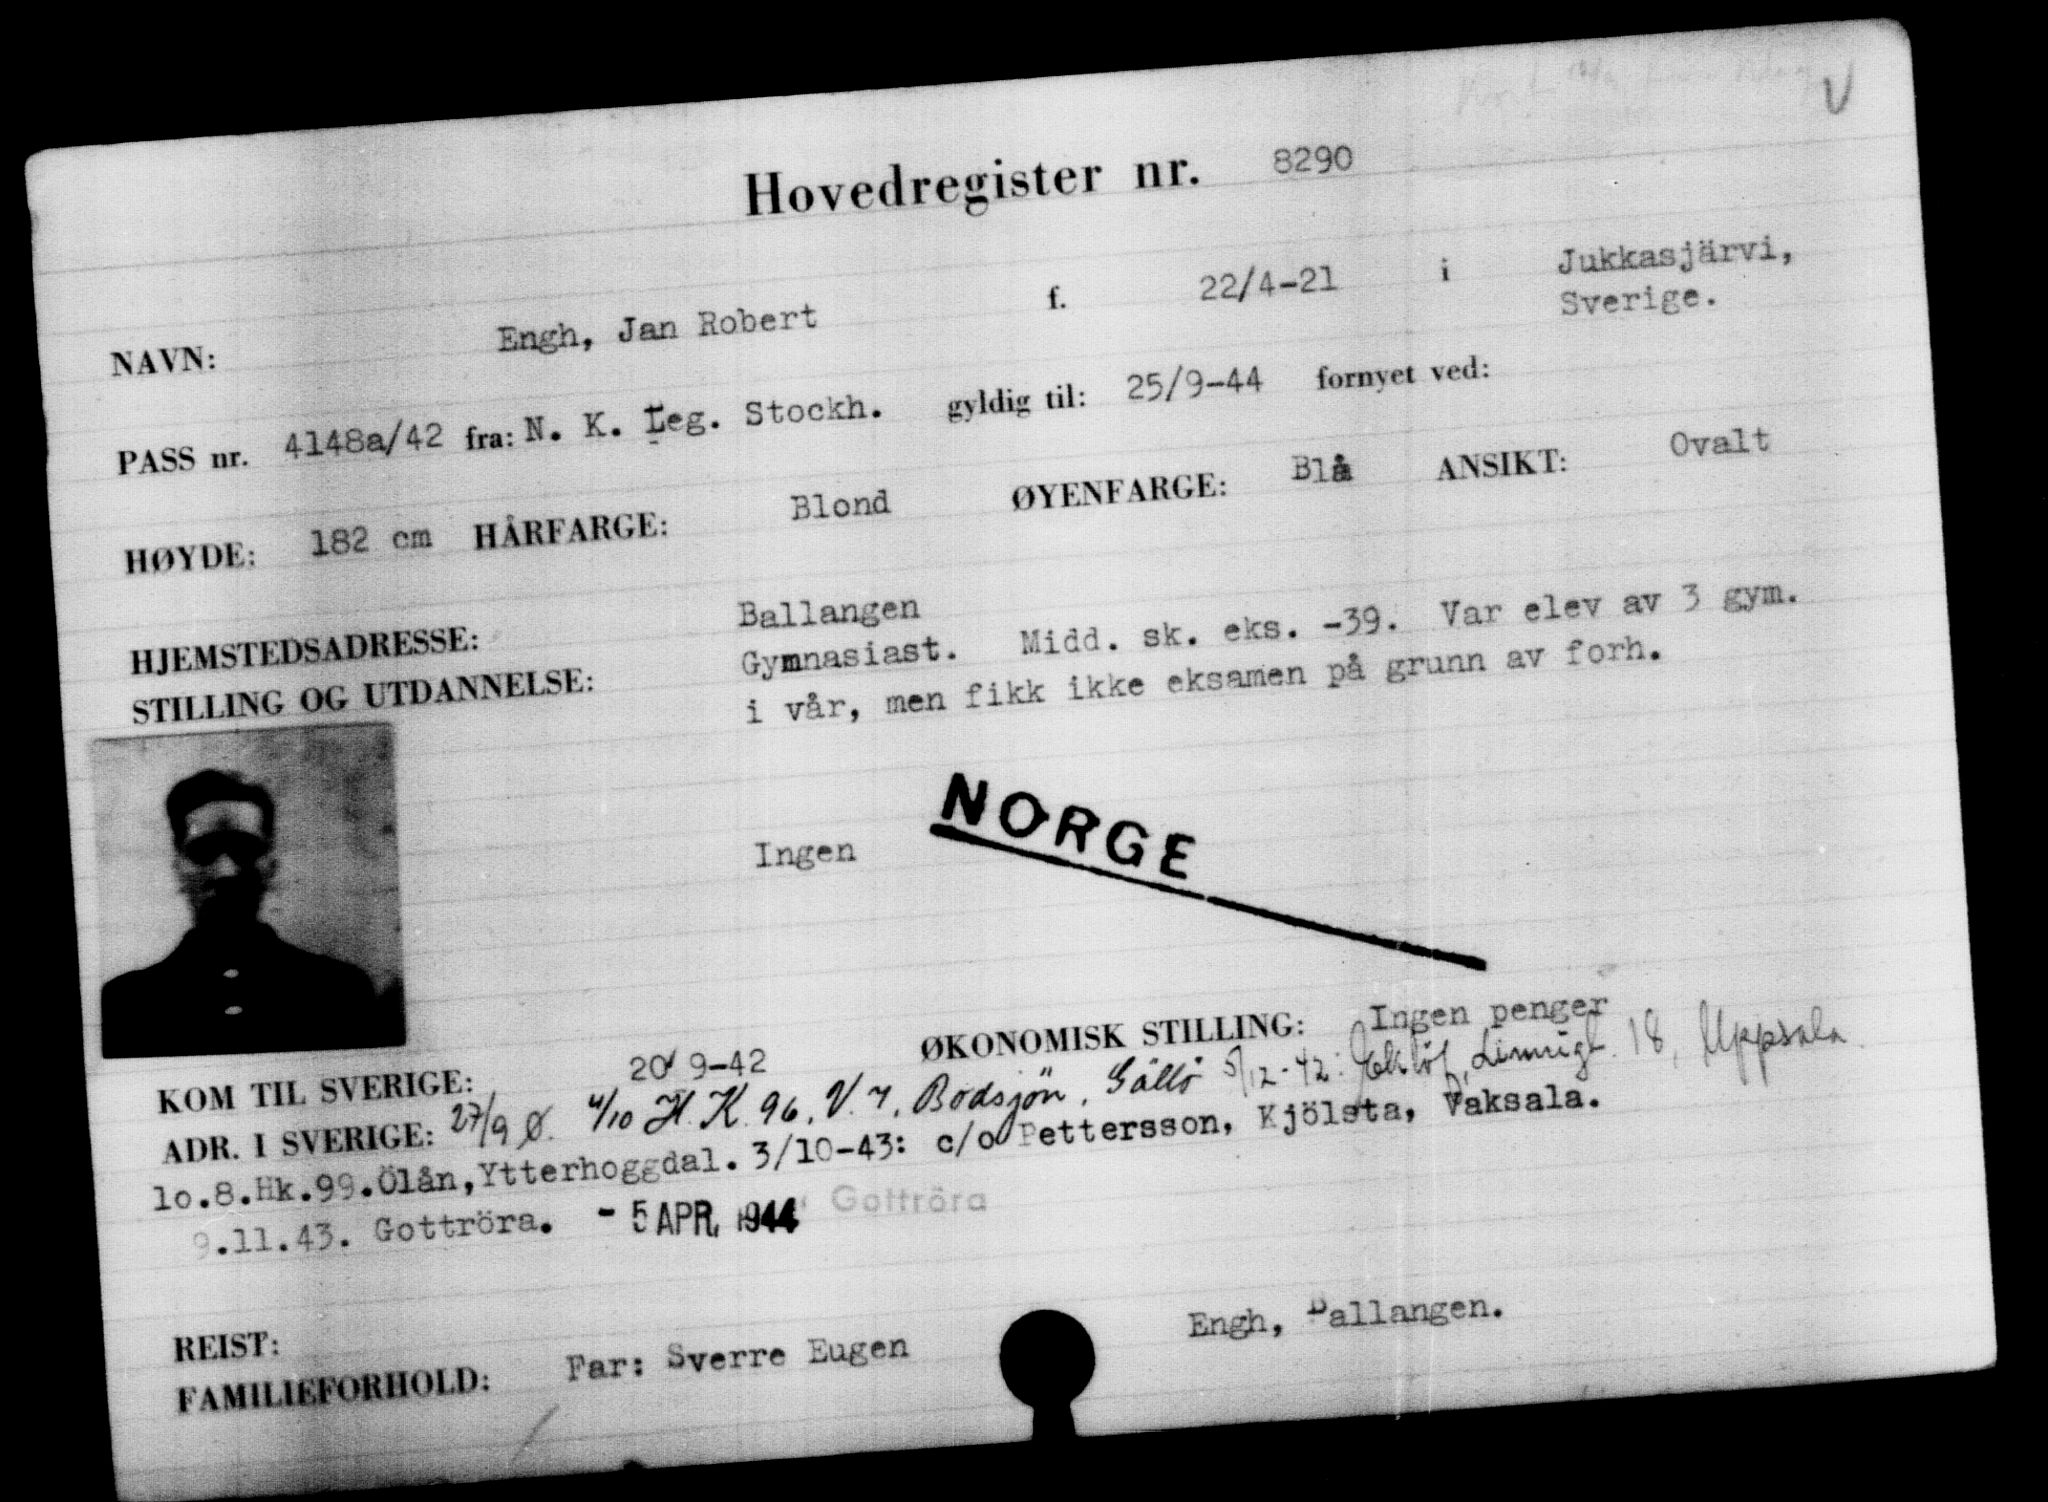 V
Hovedregister nr. 8290
NAVN: Engh, Jan Robert f. 22/4-21 i Jukkasjärvi,
Sverige.
PASS nr. 4148a/42 fra: N. K. Leg. Stockh. gyldig til: 25/9-44 fornyet ved:
HØYDE: 182 cm HÅRFARGE: Blond ØYENFARGE: Blå ANSIKT: Ovalt
HJEMSTEDSADRESSE: Ballangen
STILLING OG UTDANNELSE: Gymnasiast. Midd. sk. eks. -39. Var elev av 3 gym.
i vår, men fikk ikke eksamen på grunn av forh.
NORGE
Ingen
KOM TIL SVERIGE: 20/9-42 ØKONOMISK STILLING: Ingen penger
ADR. I SVERIGE: 27/9 Ø. 4/10 H.K. 96, V. 7, Bodsjön, Gällö 5/12-42: Eklöf, 18, Uppsala
lo.8.Hk.99.Ölån,Ytterhoggdal. 3/10-43: c/o Pettersson, Kjölsta, Vaksala.
9.11.43. Gottröra. - 5 APR. 1944 Gottröra
REIST:
FAMILIEFORHOLD: Far: Sverre Eugen Engh, Ballangen.